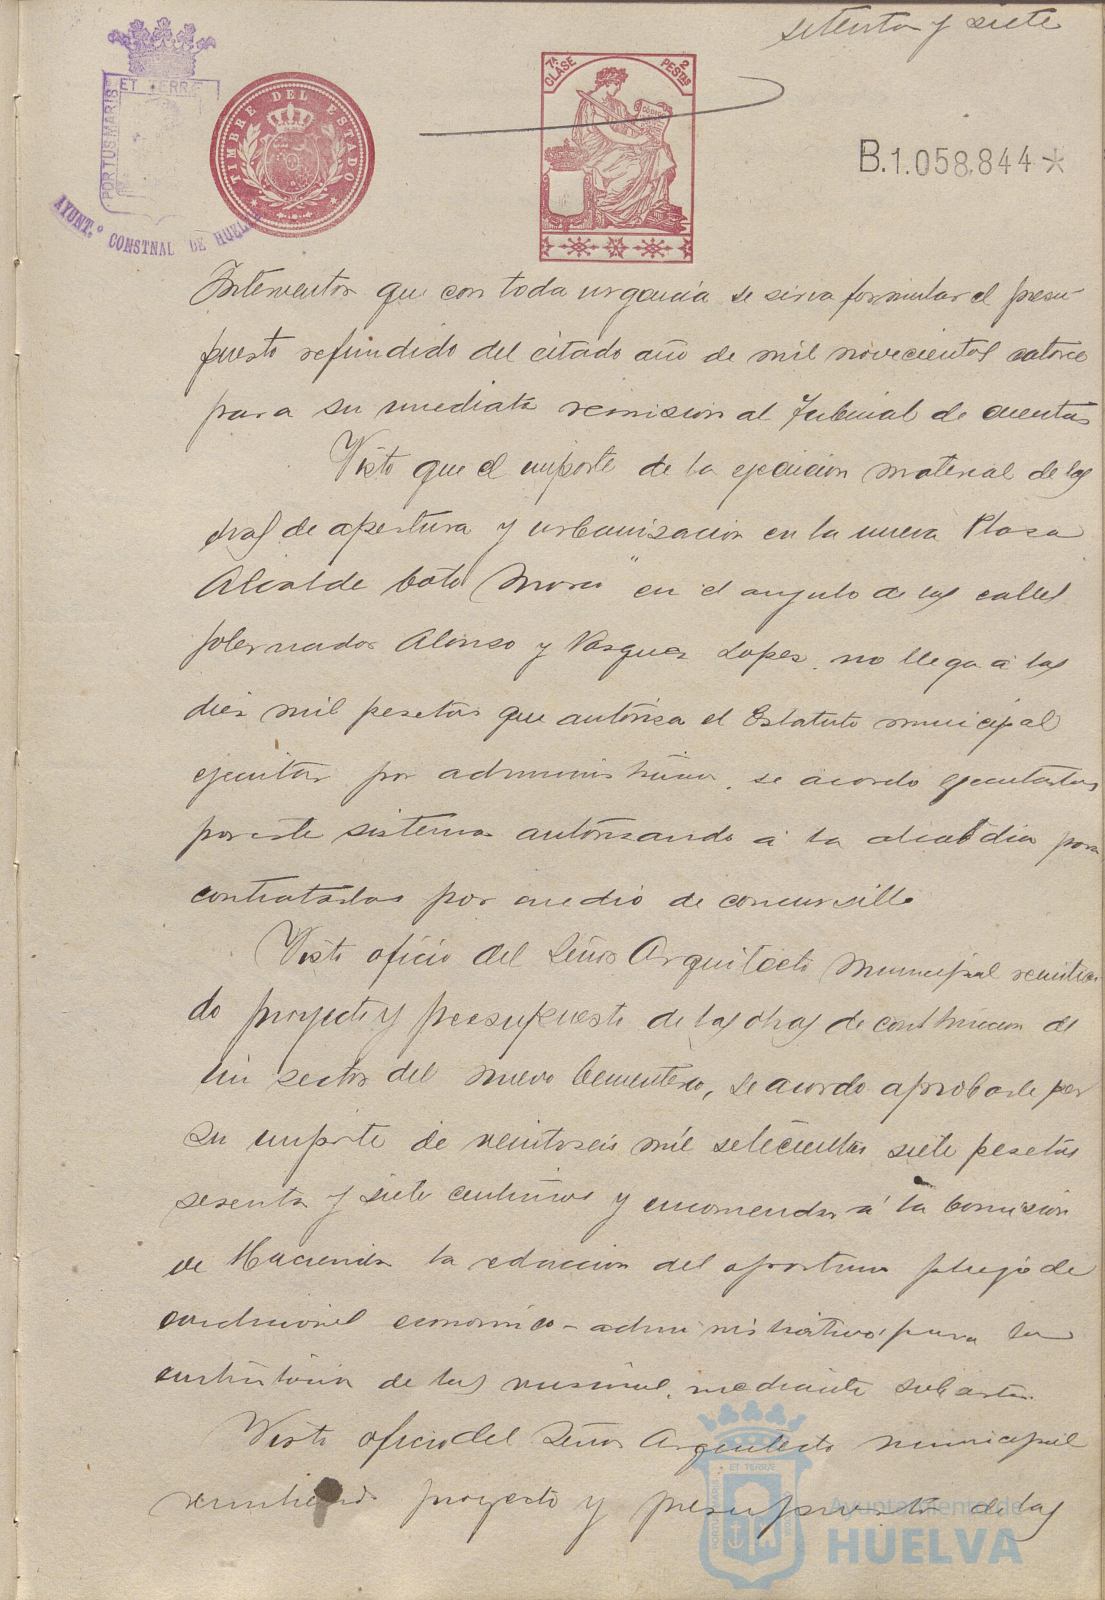 setenta y siete
ET TERRÆ
PORTUS MARIS
AYUNT.º CONSTNAL DE HUELVA
TIMBRE DEL ESTADO
7ª CLASE
2 PESTAS
B.1.058,844*
Interventor que con toda urgencia se sirva formular el presu-
puesto refundido del citado año de mil novecientos catorce
para su inmediata remision al Tribunal de cuentas
Visto que el importe de la ejecución material de las
obras de apertura y urbanizacion en la nueva Plaza
Alcalde Coto Mora" en el angulo de las calles
Gobernador Alonso y Vasquez Lopez, no llega á las
diez mil pesetas que autoriza el Estatuto municipal
ejecutar por administración, se acordó ejecutarlas
por este sistema autorizando á la alcaldia para
contratarlas por medio de concursillo
Visto oficio del Señor Arquitecto Municipal remitien
do proyecto y presupuesto de las obras de construccion de
un sector del nuevo Cementerio, se acordó aprobarle por
su importe de veintiseis mil setecientas siete pesetas
sesenta y siete centimos y encomendar á la Comision
de Hacienda la redaccion del oportuno pliego de
condiciones economico-administrativas para la
de las mismas, mediante subasta.
Visto oficio del Señor Arquitecto municipal
remitiendo proyecto y presupuesto de las
ET TERRÆ
PORTUS MARIS
Ayuntamiento de
HUELVA